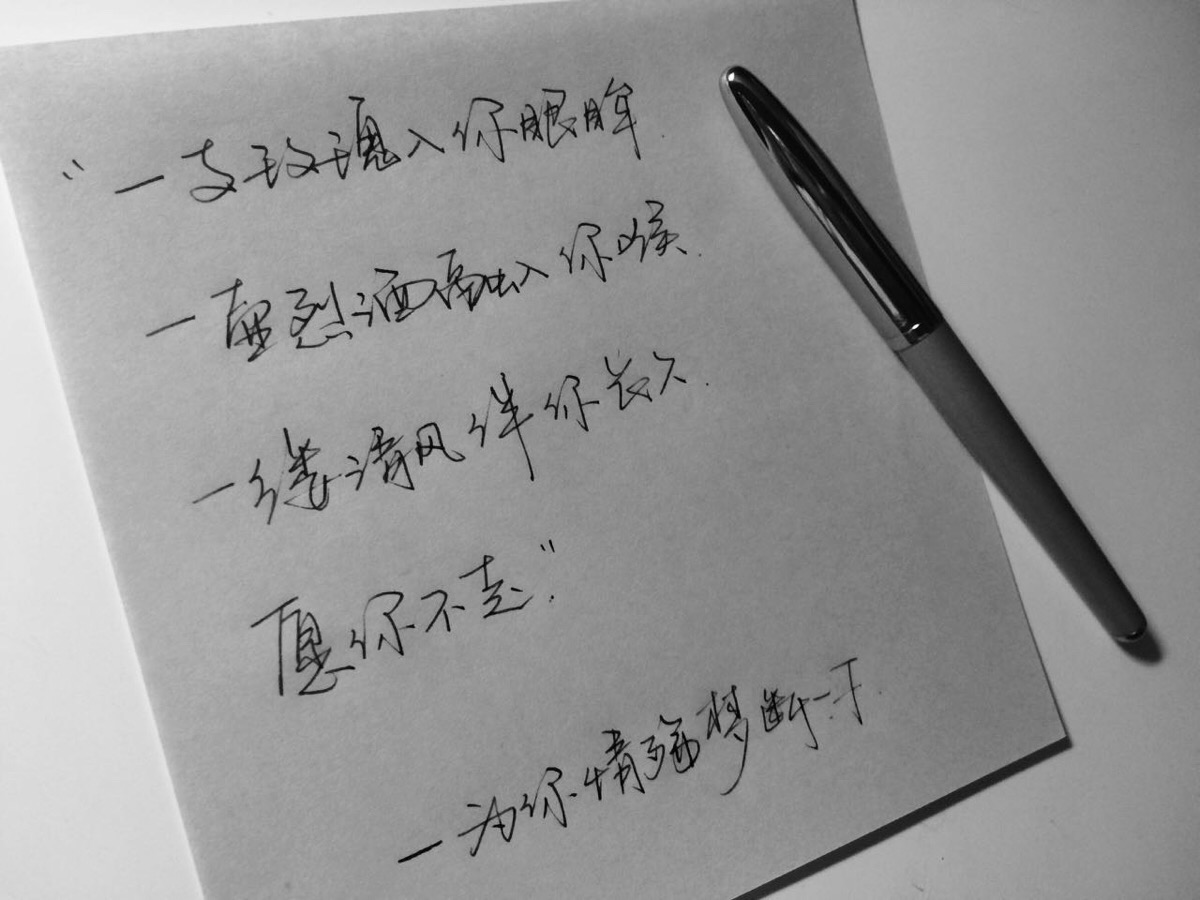 “一支玫瑰入你眼眸.
一壶烈酒高出入你喉.
一缕清风伴你长久.
愿你不走”.
一为你情殇梦断一千.